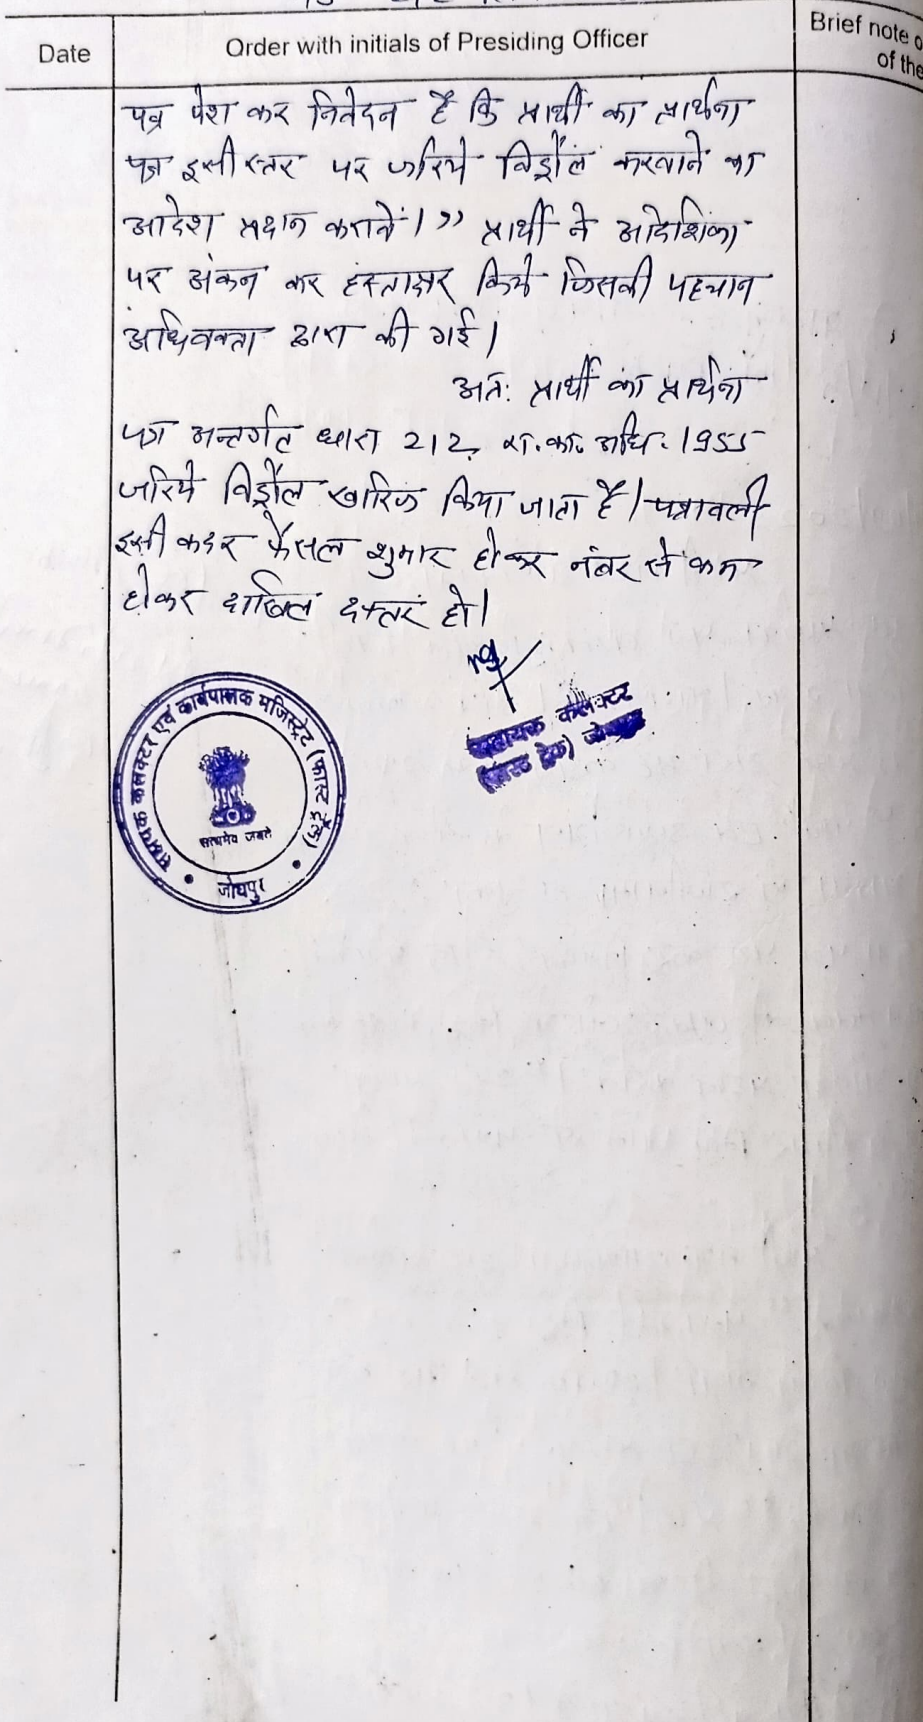 Date
Order with initials of Presiding Officer
Brief note o
of the
पत्र पेश कर निवेदन है कि प्रार्थी का प्रार्थना
पत्र इसी स्तर पर जरिये विड्रॉल करवाने का
आदेश प्रदान करावें।” प्रार्थी ने आदेशिका
पर अंकन कर हस्ताक्षर किये जिसकी पहचान
अधिवक्ता द्वारा की गई।
अतः प्रार्थी का प्रार्थना
पत्र अन्तर्गत धारा 212, रा.का. अधि. 1955
जरिये विड्रॉल खारिज किया जाता है। पत्रावली
इसी कदर फैसल शुमार होकर नंबर से कम
होकर दाखिल दफ्तर हो।
सहायक कलक्टर
(फास्ट ट्रेक) जोधपुर
सहायक कलक्टर एवं कार्यपालक मजिस्ट्रेट (फास्ट ट्रेक)
सत्यमेव जयते
जोधपुर